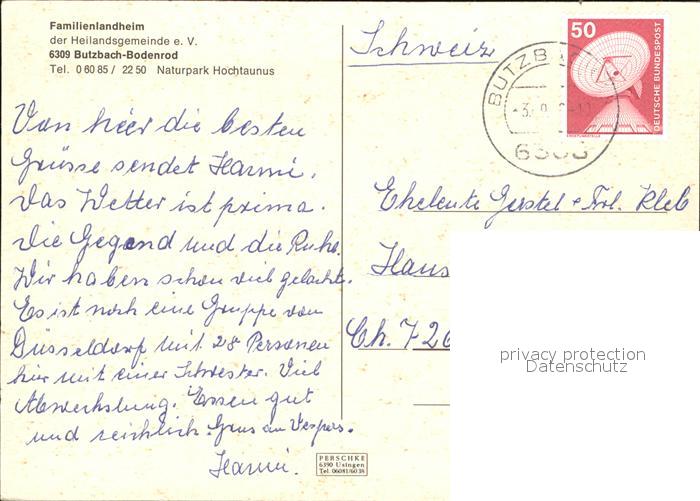 Familienlandheim
der Heilandsgemeinde e. V.
6309 Butzbach-Bodenrod
Tel. 0 60 85 / 22 50 Naturpark Hochtaunus
Von hier die besten
Grüsse sendet Hanni.
Das Wetter ist prima.
Die Gegend und die Ruhe.
Wir haben schon viel gelacht.
Es ist noch eine Gruppe von
Düsseldorf mit 28 Personen
hier mit einer Schwester. Viel
Abwechslung. Essen gut
und reichlich. Gruss an Vespers.
Hanni.
Schweiz
50
DEUTSCHE BUNDESPOST
BUTZBA
6308
Eheleute Gerstel + Frl. Kleb
Haus
Ch. 726
privacy protection
Datenschutz
PERSCHKE
6390 Usingen
Tel. 06081/6038